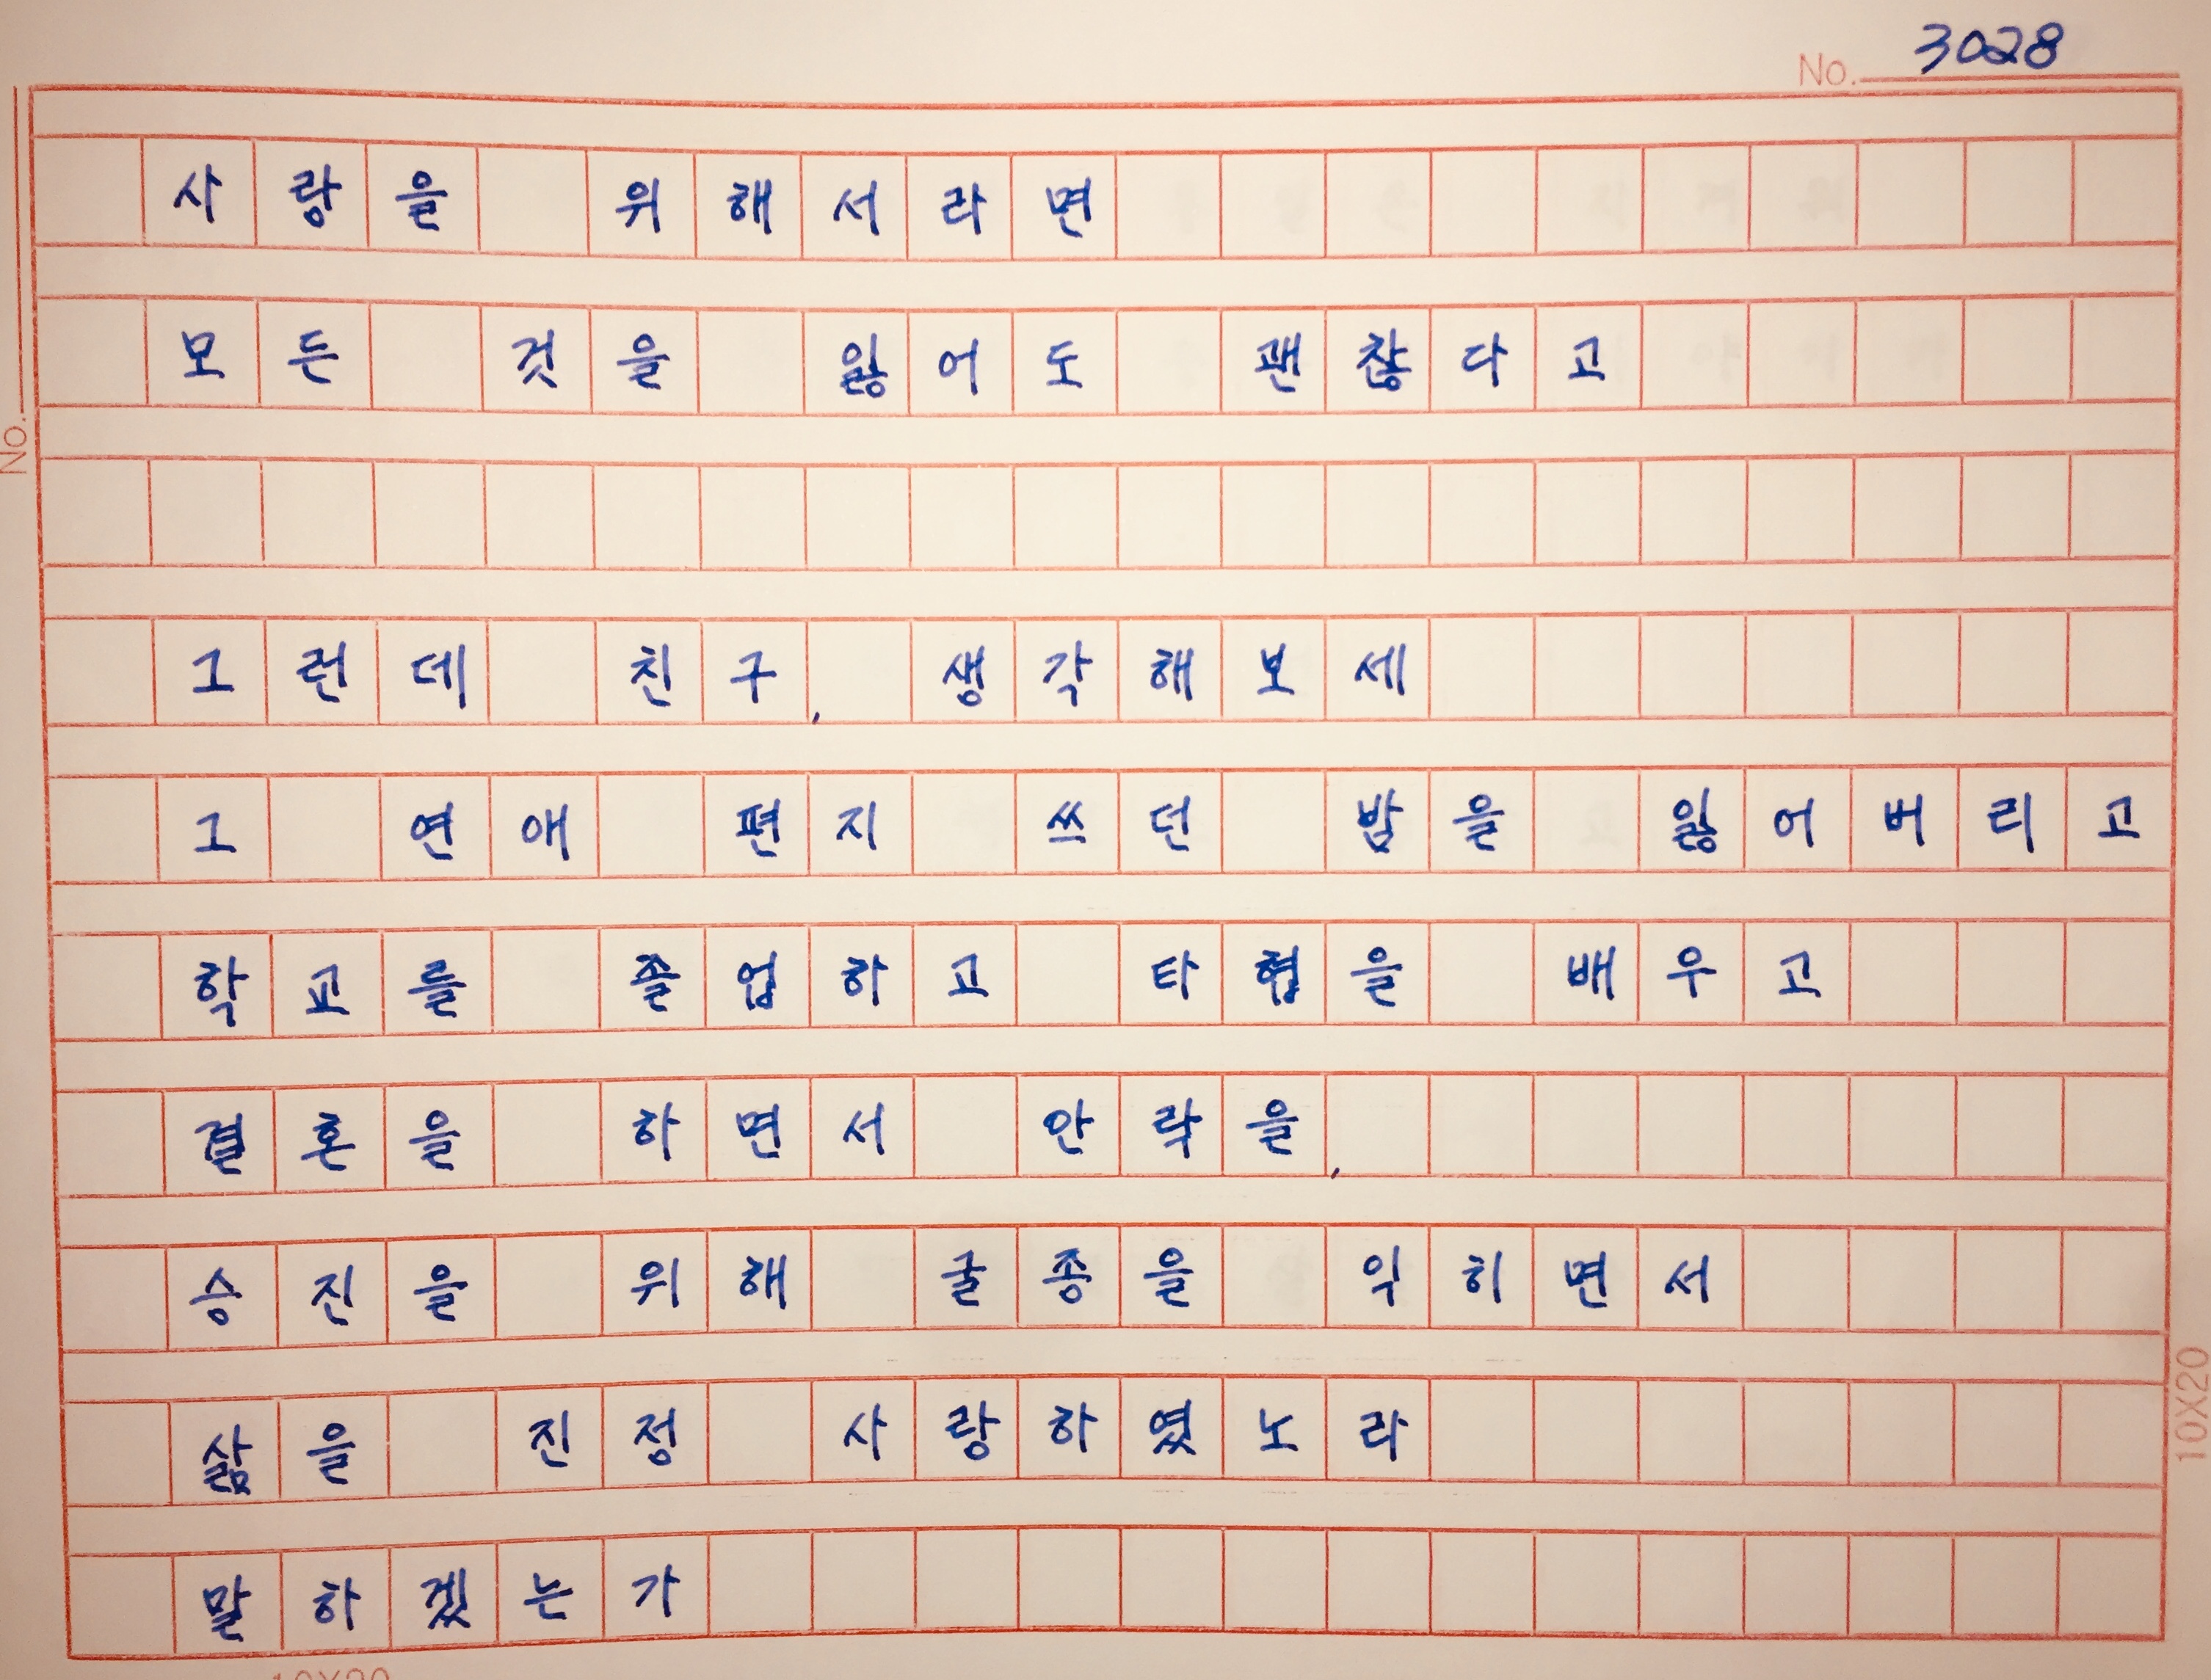 No. 3028
사랑을 위해서라면
모든 것을 잃어도 괜찮다고
그런데 친구, 생각해보세
그 연애 편지 쓰던 밤을 잃어버리고
학교를 졸업하고 타협을 배우고
결혼을 하면서 안락을,
승진을 위해 굴종을 익히면서
삶을 진정 사랑하였노라
말하겠는가
No.
10X20
10X20